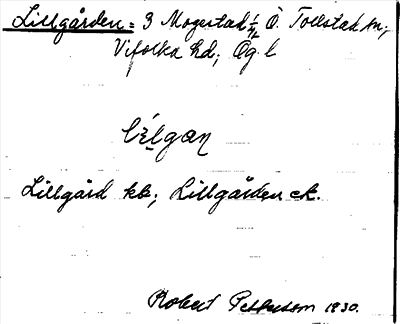 Lillgården = 3 Mogestad ½ Ö. Tollstad sn;
Vifolka hd; Ög l
Lillgård kb; Lillgården ek.
Robert Pettersson 1930.